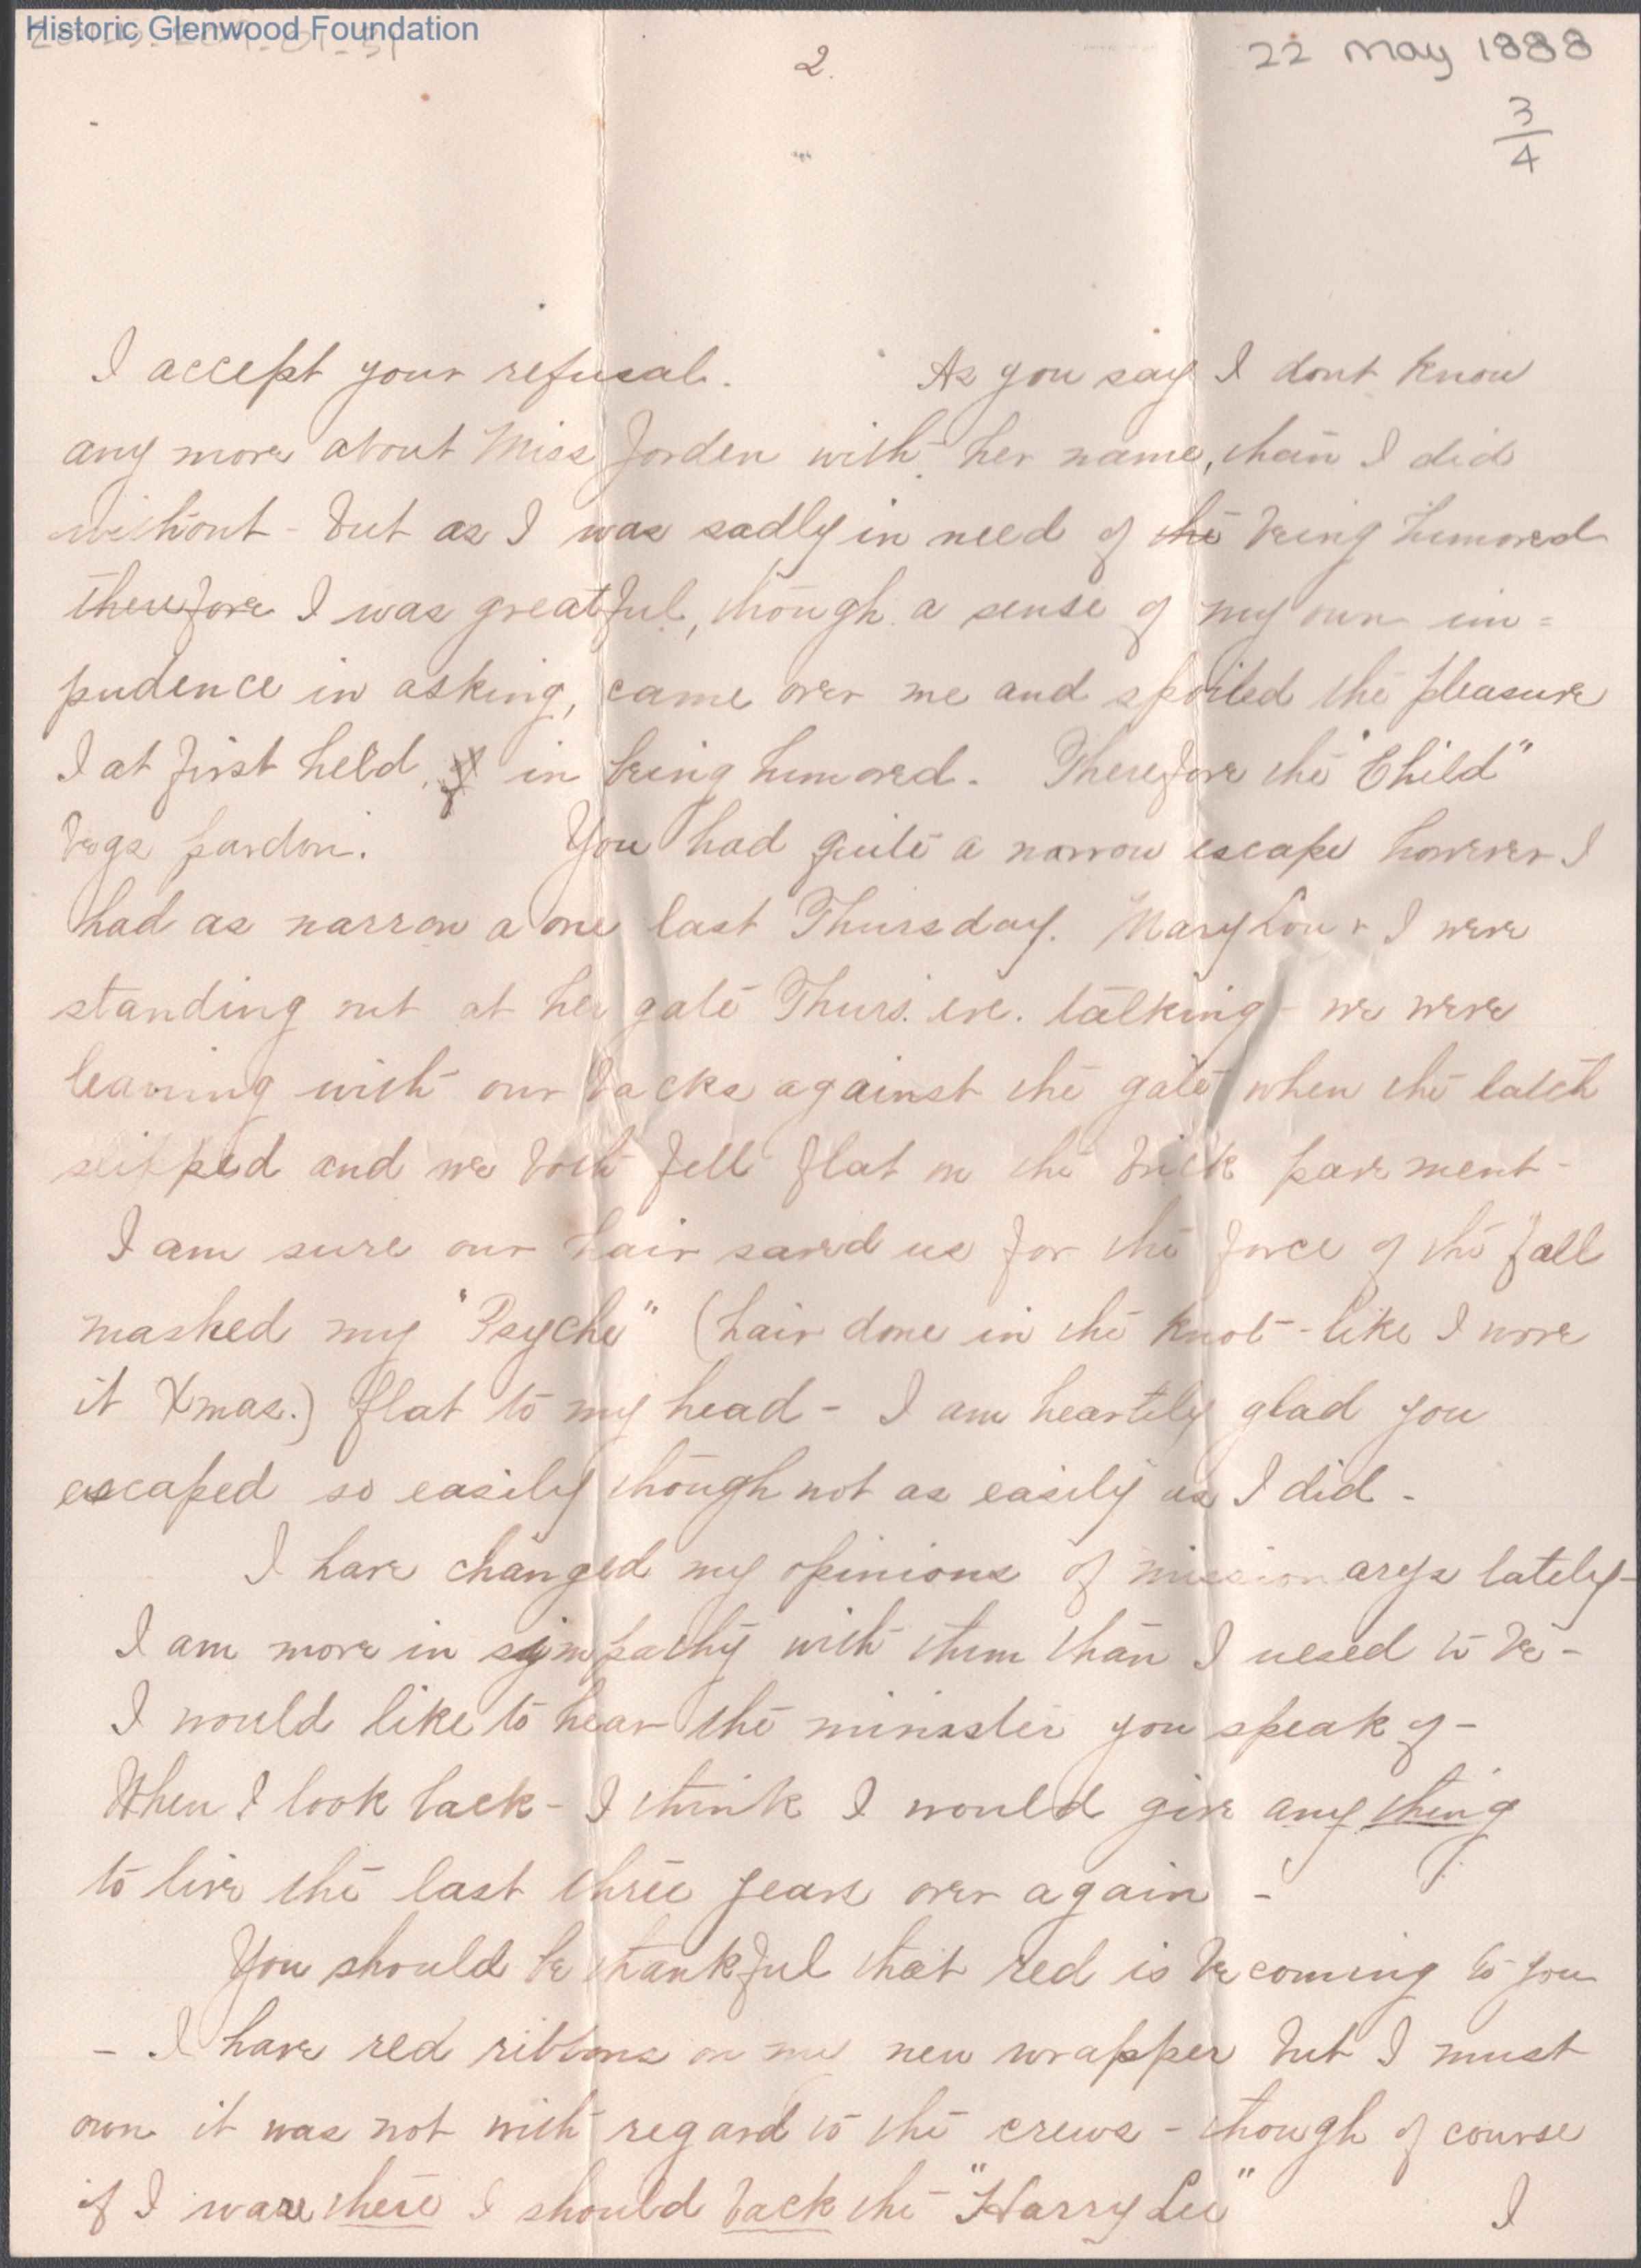 Historic Glenwood Foundation
2.
22 May 1888
3/4
I accept your refusal. As you say I dont know
any more about Miss Jorden with her name, than I did
without - but as I was sadly in need of the being humored
therefore I was greatful, though a sense of my own im=
pudence in asking, came over me and spoiled the pleasure
I at first held in being humored. Therefore the "Child"
begs pardon. You had quite a narrow escape however I
had as narrow a one last Thursday. Mary Lou & I were
standing out at her gate Thurs. eve. talking - we were
leaning with our backs against the gate when the latch
slipped and we both fell flat on the brick pavement -
I am sure our hair saved us for the force of the fall
mashed my "Psyche" (hair done in the knot - like I wore
it Xmas.) flat to my head - I am heartily glad you
escaped so easily though not as easily as I did -
I have changed my opinions of missionarys lately -
I am more in sympathy with them than I used to be -
I would like to hear the minister you speak of -
When I look back - I think I would give any thing
to live the last three years over again -
You should be thankful that red is becoming to you
- I have red ribbons on my new wrapper but I must
own it was not with regard to the crews - though of course
if I were there I should back the "Harry Lee" I